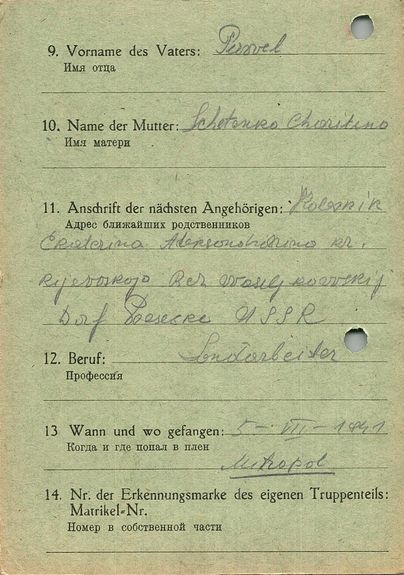 9. Vorname des Vaters: Pawel
Имя отца
10. Name der Mutter: Schetenko Charitina
Имя матери
11. Anschrift der nächsten Angehörigen:
Адрес ближайших родственников
Ekaterina
Dorf USSR
12. Beruf: Landarbeiter
Профессия
13 Wann und wo gefangen: 5-VIII-1941
Когда и где попал в плен
14. Nr. der Erkennungsmarke des eigenen Truppenteils:
Matrikel-Nr.
Номер в собственной части